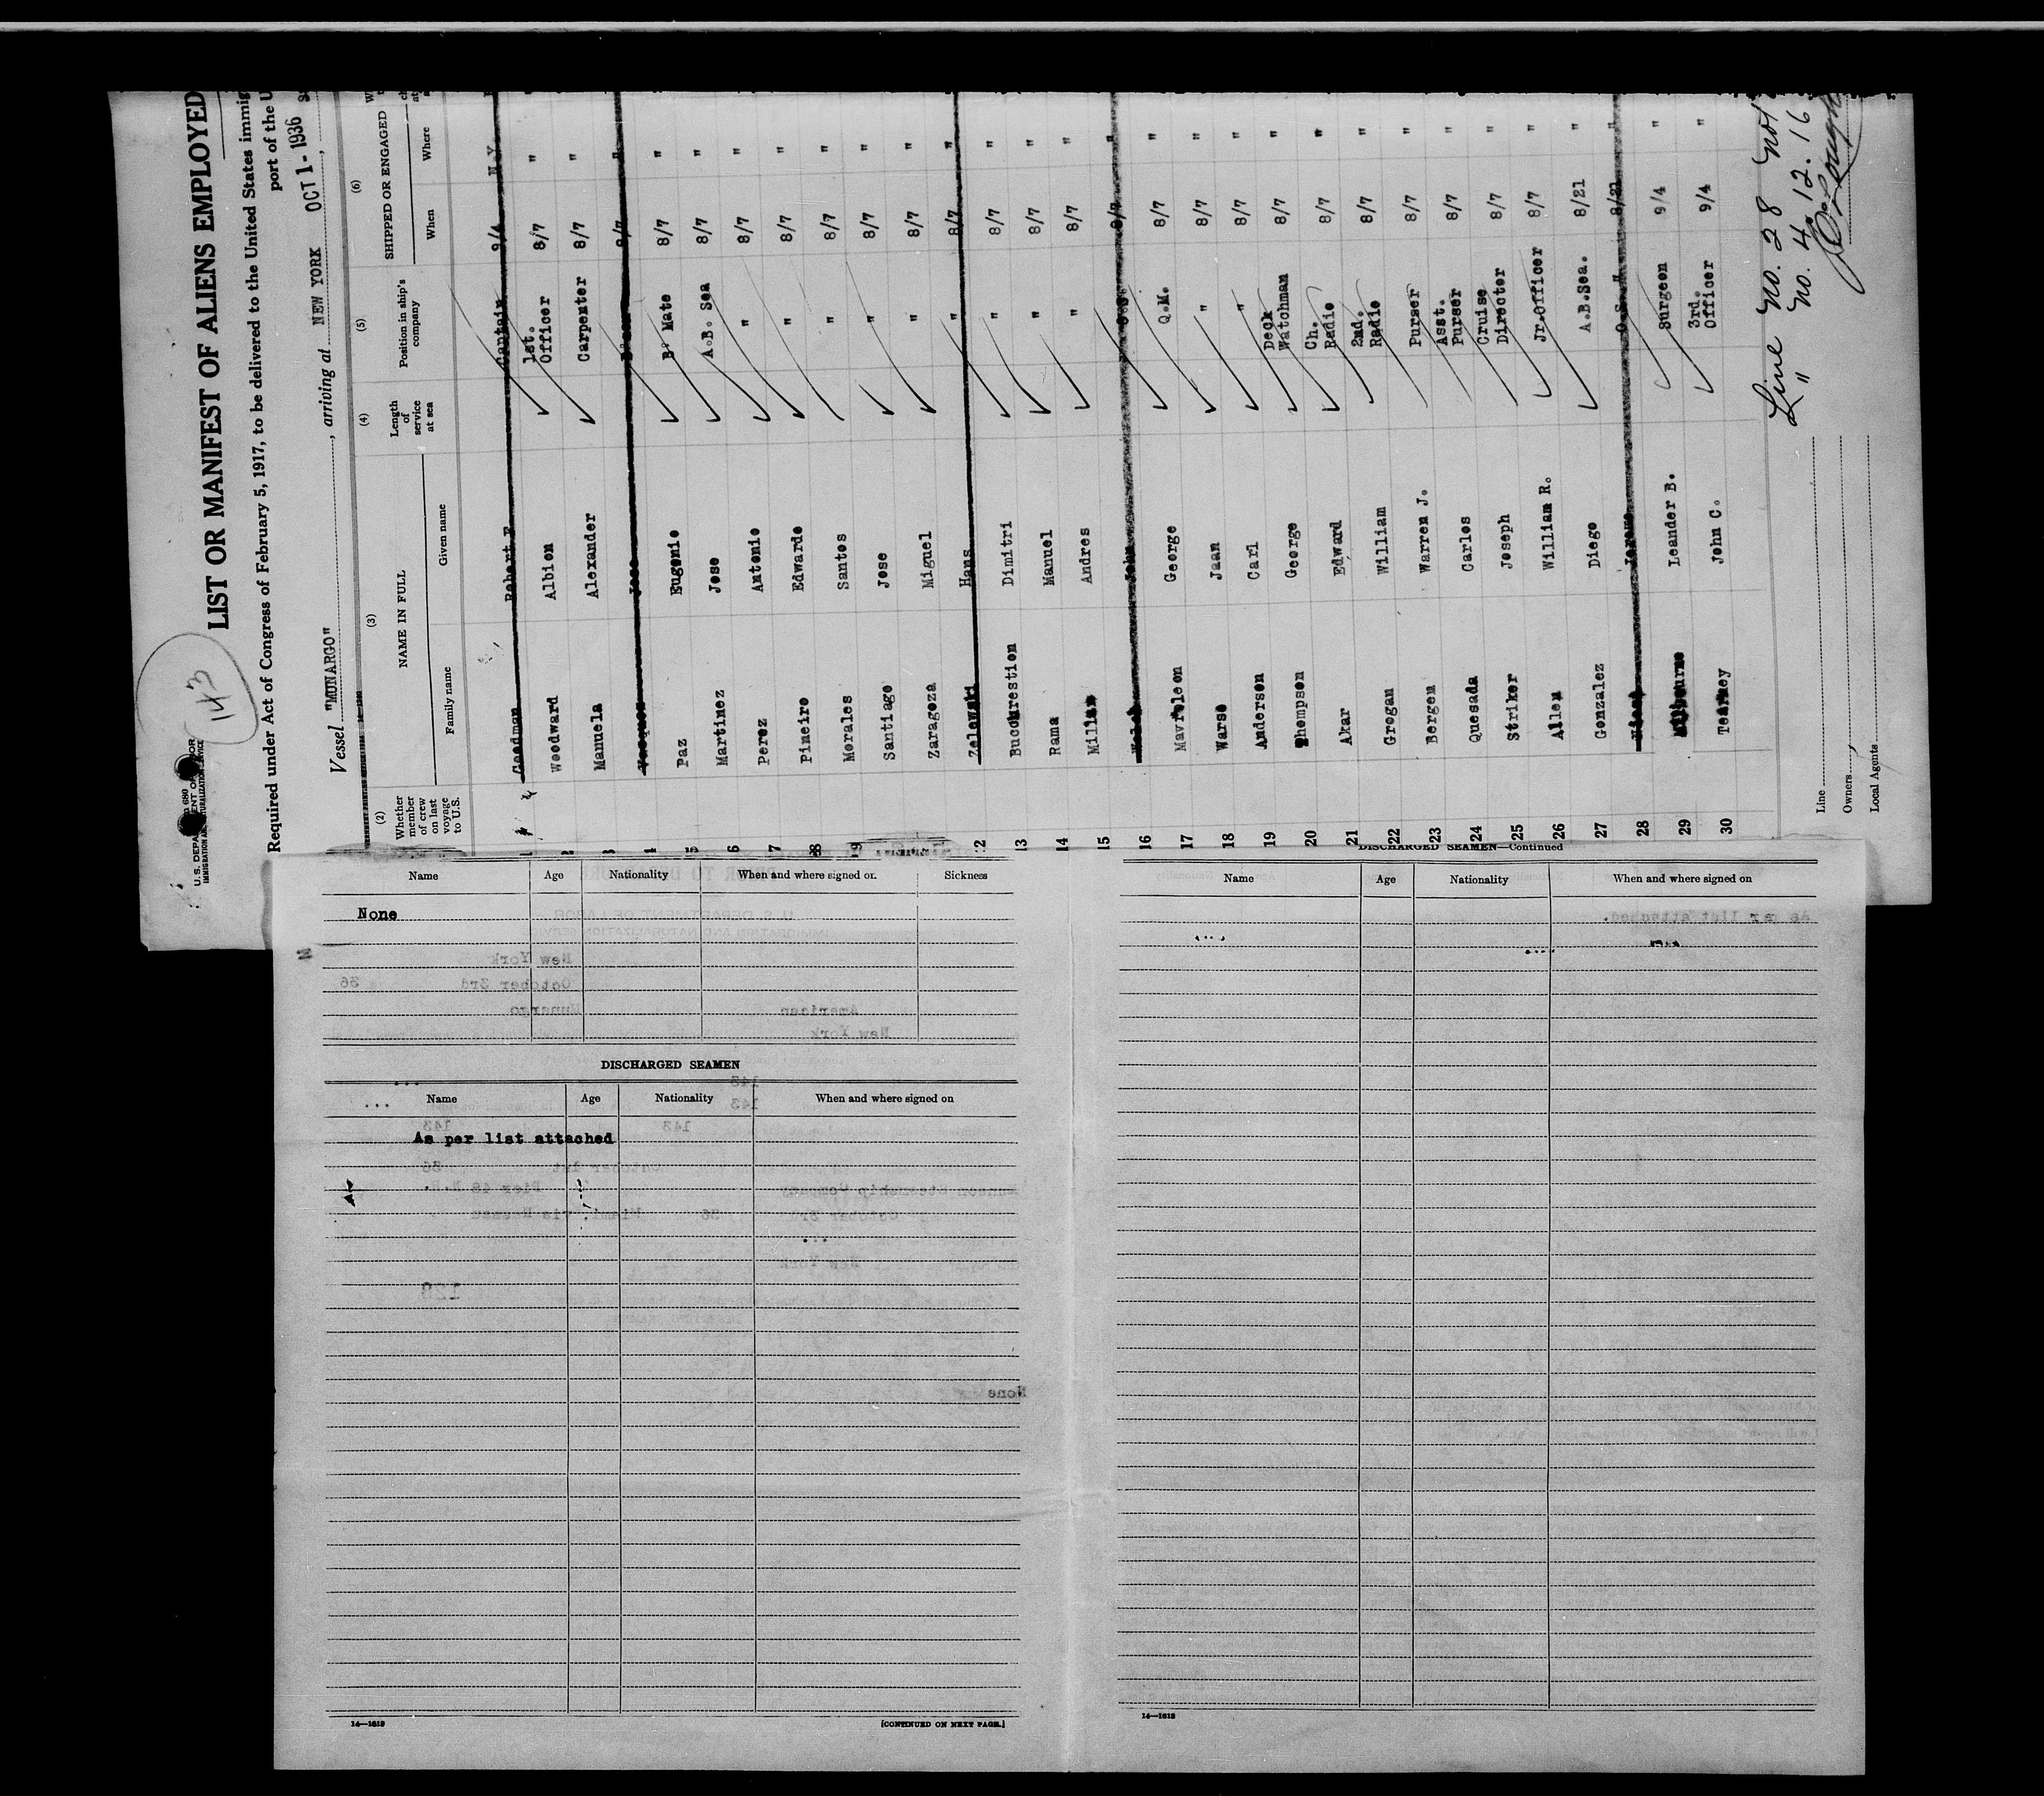 143
U. S. DEPARTMENT OF LABOR
IMMIGRATION AND NATURALIZATION SERVICE
LIST OR MANIFEST OF ALIENS EMPLOYED
Required under Act of Congress of February 5, 1917, to be delivered to the United States immig
port of the U
Vessel "MUNARGO", arriving at NEW YORK OCT 1-1936,
(2) (3) (4) (5) (6)
Whether member of crew on last voyage to U.S. NAME IN FULL Length of service at sea Position in ship's company SHIPPED OR ENGAGED
Family name Given name When Where
1 Goodman Robert F. Captain 9/4 N.Y.
2 Woodward Albion 1st. Officer 8/7 "
3 Manuela Alexander Carpenter 8/7 "
4 Jose 8/7 "
5 Paz Eugenio B' Mate 8/7 "
6 Martinez Jose A.B. Sea 8/7 "
7 Perez Antonio " 8/7 "
8 Pineiro Edwardo " 8/7 "
9 Morales Santos " 8/7 "
Santiago Jose " 8/7 "
Zaragoza Miguel " 8/7 "
12 Zelewski Hans " 8/7 "
13 Bucchrestion Dimitri " 8/7 "
14 Rama Manuel " 8/7 "
15 Millan Andres " 8/7 "
John 8/7 "
16 Mavroleon George Q.M. 8/7 "
17 Warso Jaan " 8/7 "
18 Anderson Carl " 8/7 "
19 Thompson George Deck Watchman 8/7 "
20 Akar Edward Ch. Radio 8/7 "
21 Grogan William 2nd. Radio 8/7 "
22 Bergen Warren J. Purser 8/7 "
23 Quesada Carlos Asst. Purser 8/7 "
24 Striker Joseph Cruise Director 8/7 "
25 Allen William R. Jr.Officer 8/7 "
26 Gonzalez Diego A.B.Sea. 8/21 "
27 O.S. " 8/21 "
28 Milbourne Leander B. Surgeon 9/4 "
29 Tearney John C. 3rd. Officer 9/4 "
30
Line No. 28 not
" No. 4. 12. 16
Line
Owners
Local Agents
Name Age Nationality When and where signed on Sickness
None
DISCHARGED SEAMEN
Name Age Nationality When and where signed on
As per list attached
14—1613
[CONTINUED ON NEXT PAGE.]
DISCHARGED SEAMEN—Continued
Name Age Nationality When and where signed on
14—1613